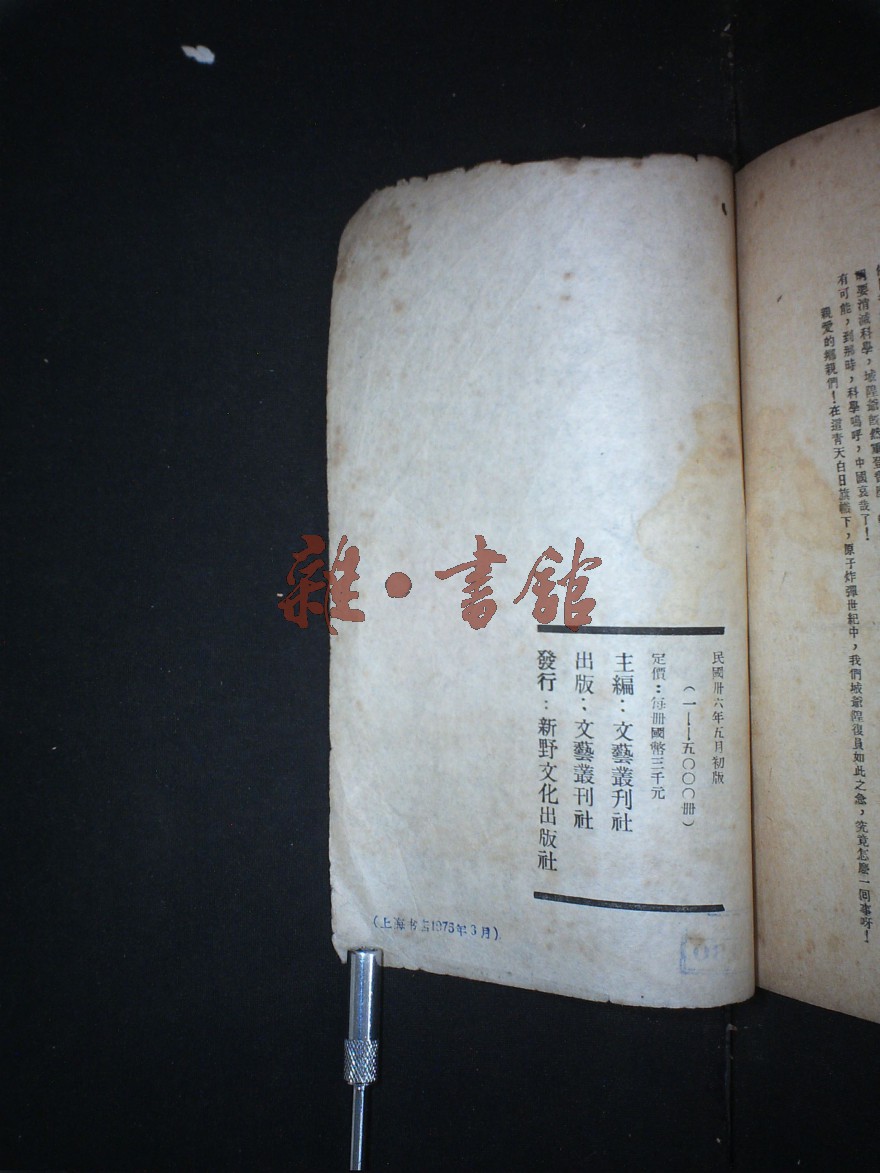 綱要清滅科學，城隍爺
有可能，到那時，科學嗚呼，中國哀哉了！
親愛的鄉親們！在這青天白日旗幟下，原子炸彈世紀中，我們城爺隍復員如此之急，究竟怎麼一回事呀！
民國卅六年五月初版
（一——五〇〇〇册）
定價：每册國幣三千元
主編：文藝叢刋社
出版：文藝叢刊社
發行：新野文化出版社
（上海书店1976年3月）
雜·書館